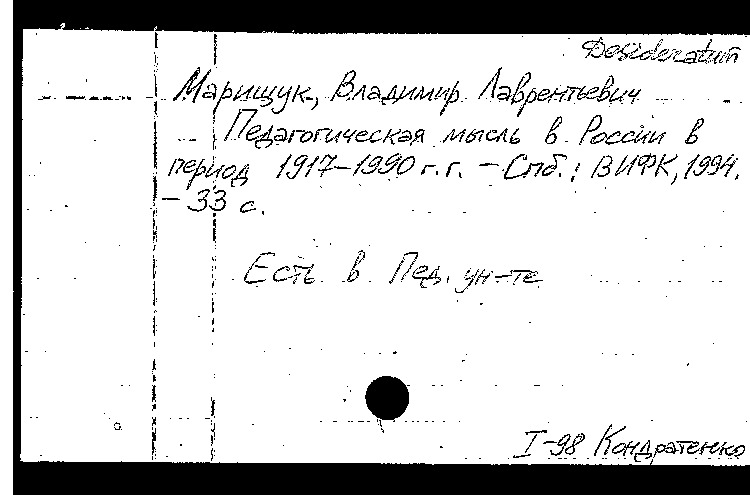 Desideratum
Марищук, Владимир Лаврентьевич
Педагогическая мысль в России в
период 1917-1990 г.г. - Спб.: ВИФК, 1994.
- 33 с.
Есть в Пед. ун-те
I-98 Кондратенко